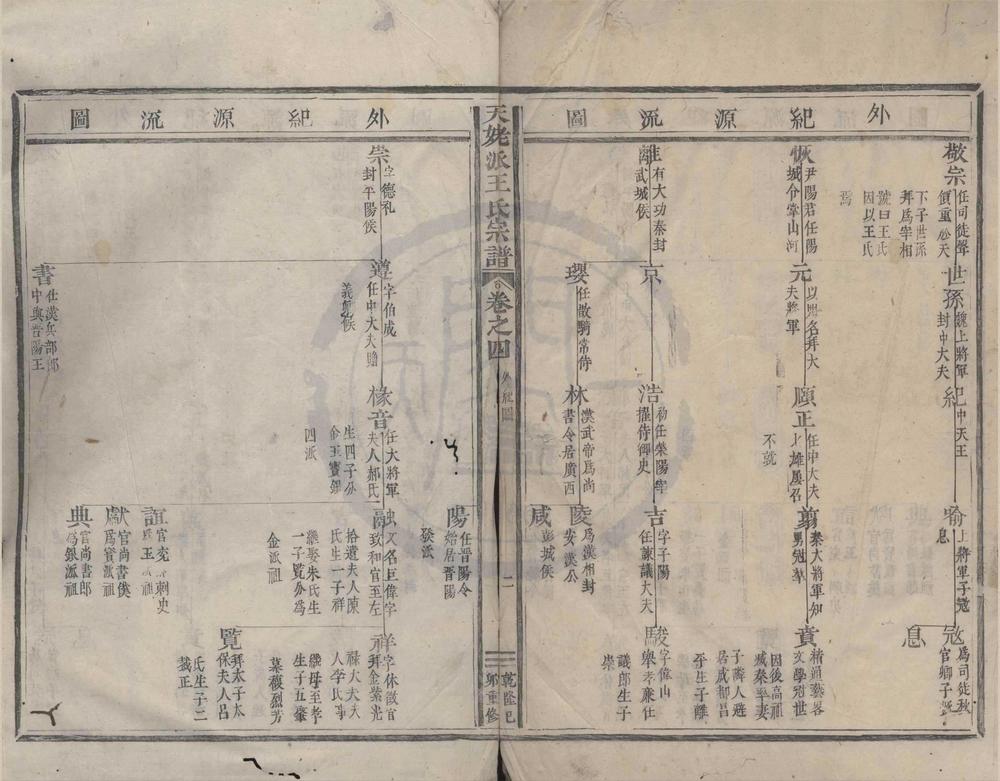 外紀源流圖
敬宗
任司徒聲
價重於天
下子世孫
拜為宰相
號曰王氏
因以王氏
焉
恢
尹陽君任陽
城令掌山河
有大功秦封
武城侯
世孫
魏上將軍
封中大夫
元
以賜名拜大
夫將軍
京
瓔
任散騎常侍
紀
中天王
頤正
任中大夫
上雄屢召
不就
浩
初任滎陽宰
擢侍御史
林
漢武帝為尚
書令居廣西
喻
上將軍子冦
息
翦
秦大將軍知
勇冠華
吉
字子陽
任諫議大夫
陵
為漢相封
安漢公
咸
彭城侯
冦
為司徒秋
官卿子
息
賁
精通藝畧
文學冠世
因後高祖
滅秦平妻
子辭人避
居咸都昌
平生子離
駿
字偉山
舉孝亷仕
議郎生子
崇
天姥派王氏宗譜
卷之四
外紀圖
二
乾隆己
卯重修
外紀源流圖
崇
字德礼
封平陽侯
遵
字伯成
任中大夫贍
義侯
書
仕漢兵部郎
中與晉陽王
椽音
任大將軍
夫人郝氏
生四子分
金玉寶銀
四派
陽
任晉陽令
始居晉陽
融
又名巨偉字
致和官至左
拾遺夫人陳
氏生一子祥
繼娶朱氏生
一子覧分為
金派祖
誼
王派祖
獻
官尚書僕
為寶派祖
典
官尚書郎
為銀派祖
祥
字休徵官
拜金紫光
祿大夫夫
人李氏事
繼母至孝
生子五肇
馥烈芳
覧
拜太子太
保夫人吕
氏生子二
裁正